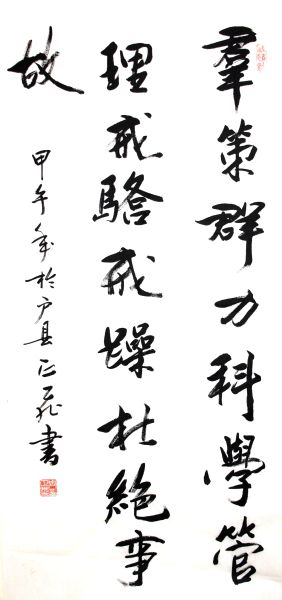 羣策群力科學管
理戒驕戒躁杜絕事
故
甲午年於户县 書